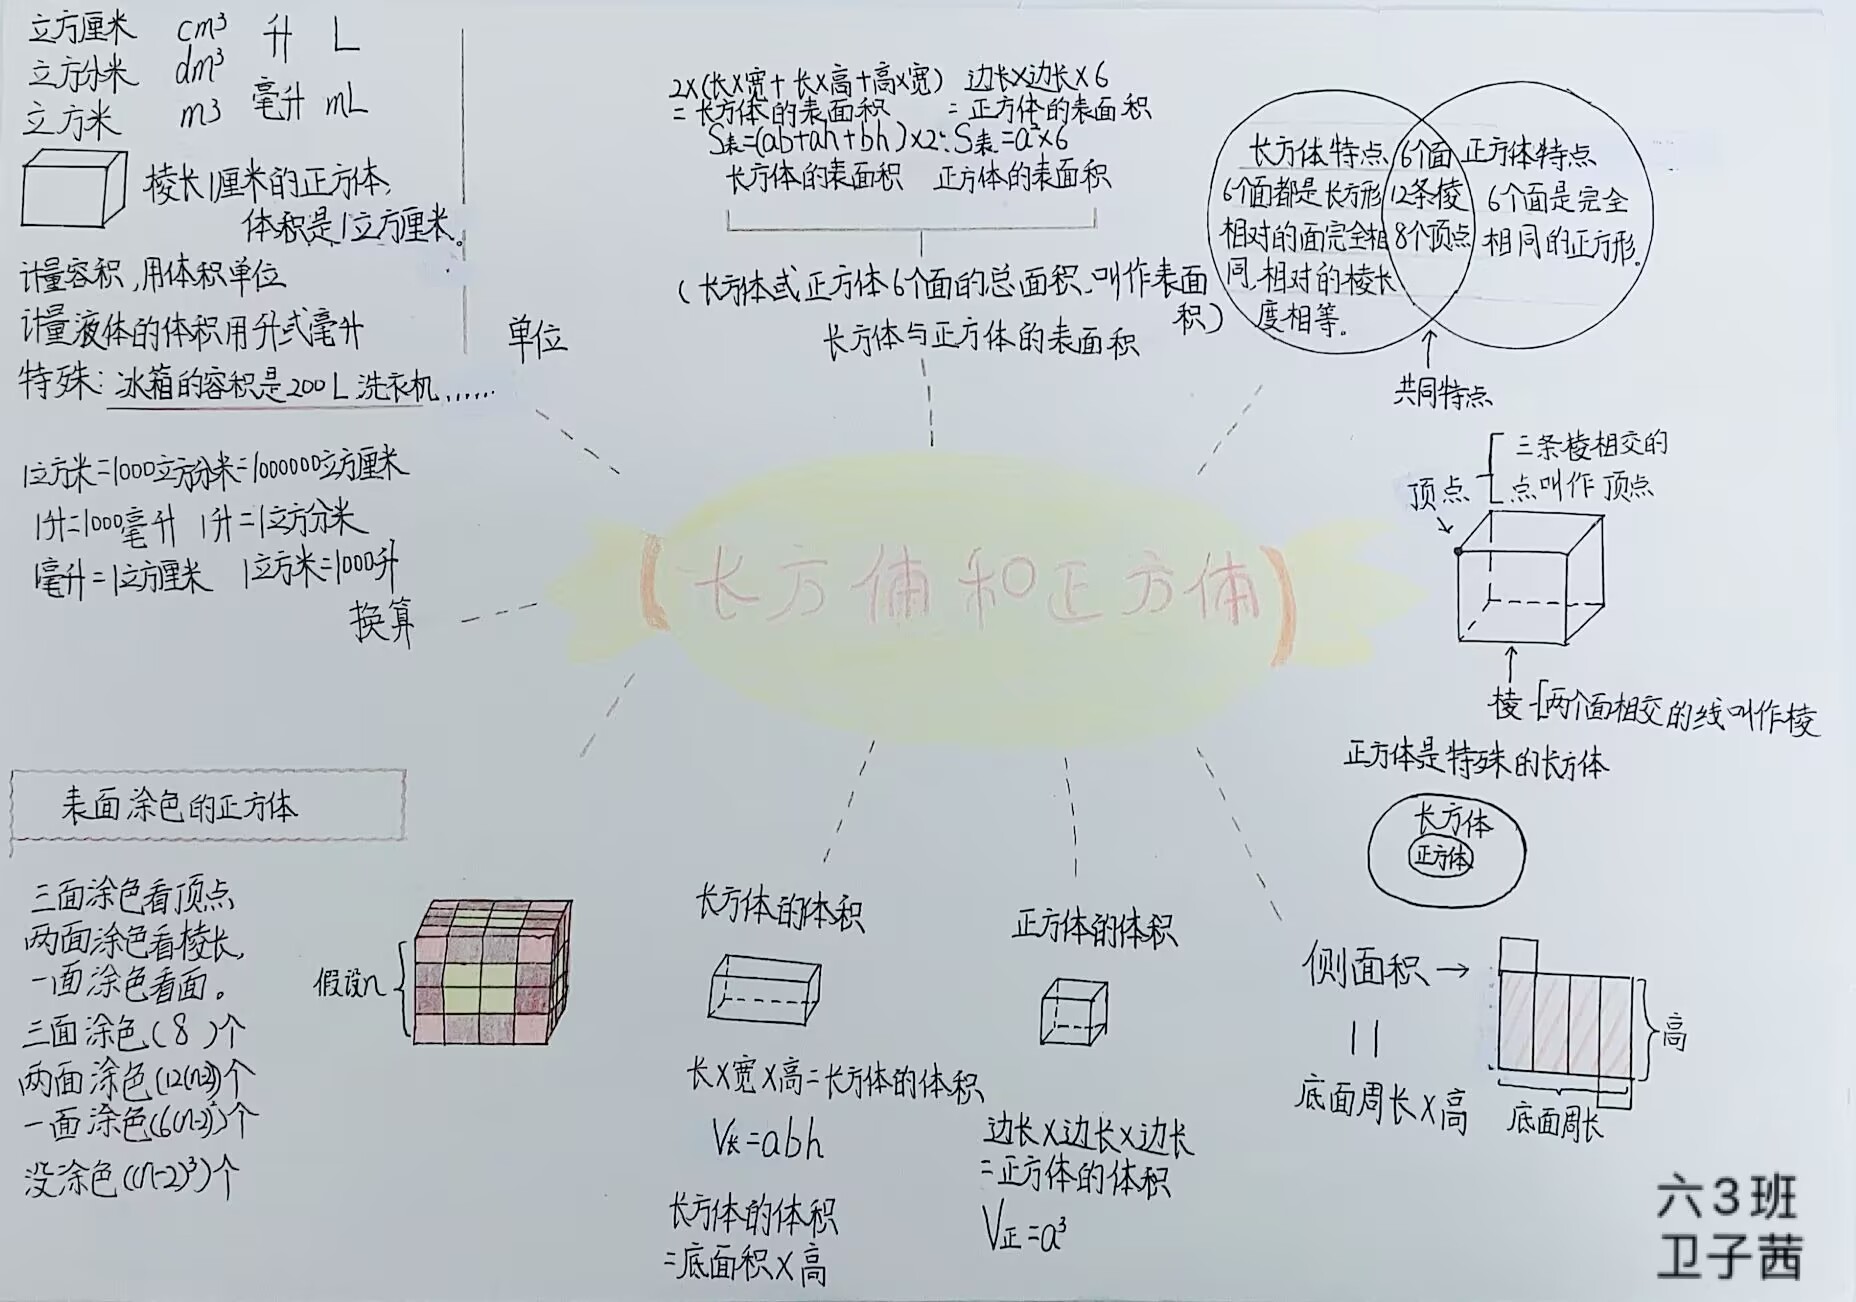 立方厘米 cm³ 升 L
立方分米 dm³
立方米 m3 毫升 mL
棱长1厘米的正方体,
体积是1立方厘米。
计量容积,用体积单位
计量液体的体积用升或毫升
特殊:冰箱的容积是200L 洗衣机……
单位
1立方米=1000立方分米=1000000立方厘米
1升=1000毫升 1升=1立方分米
1毫升=1立方厘米 1立方米=1000升
换算
2×(长×宽+长×高+高×宽) 边长×边长×6
=长方体的表面积 =正方体的表面积
S表=(ab+ah+bh)×2 S表=a²×6
长方体的表面积 正方体的表面积
(长方体或正方体6个面的总面积,叫作表面
积)
长方体与正方体的表面积
长方体特点
6个面都是长方形
相对的面完全相
同,相对的棱长
度相等。
6个面
12条棱
8个顶点
正方体特点
6个面是完全
相同的正方形。
共同特点
三条棱相交的
点叫作顶点
顶点
棱 两个面相交的线叫作棱
正方体是特殊的长方体
长方体
正方体
(长方体和正方体)
表面涂色的正方体
三面涂色看顶点
两面涂色看棱长,
一面涂色看面。
三面涂色(8)个
两面涂色(12(n-2))个
一面涂色(6(n-2)²)个
没涂色((n-2)³)个
假设n
长方体的体积
长×宽×高=长方体的体积
V长=abh
长方体的体积
=底面积×高
正方体的体积
边长×边长×边长
=正方体的体积
V正=a³
侧面积→
=
底面周长×高
高
底面周长
六3班
卫子茜